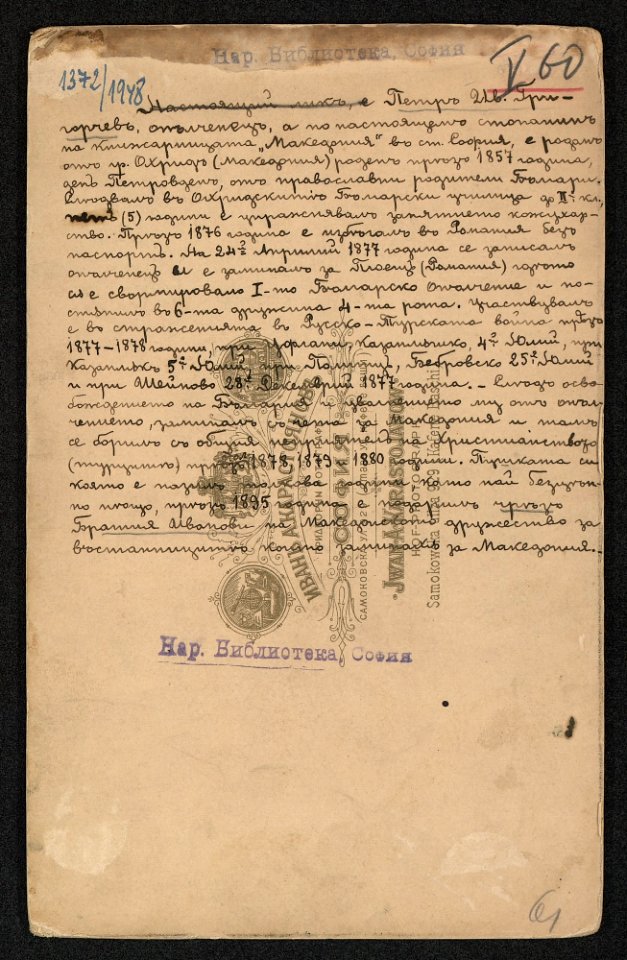 Нар. Библиотека, София
1372/1948
V 60
Настоящий ликъ, е Петръ Ив. Гри-
горчевъ, опълченецъ, а по настоящемъ стопанинъ
на книжарницата „Македония" въ ст. София, е родомъ
отъ гр. Охридъ (Македония) роденъ презъ 1857 година,
день Петровденъ, отъ православни родители Българи.
въ Охридскитѣ Български училища до II кл.
(5) години е упражнявалъ занятието кожухар-
ство. Презъ 1876 година е избѣгалъ въ Романия безъ
паспортъ. На 24й Априлий 1877 година се записалъ
опълченецъ и е заминалъ за Плоещъ (Романия) гдѣто
се е сформировало I-то Българско опълчение и по-
стѫпилъ въ 6-та дружина 4-та рота. Участвувалъ
е въ сраженията въ Русско-Турската война презъ
1877-1878 години, при Уфлани, Казанлъшко, 4й Юлий, при
Казанлъкъ 5й Юлий, при Бебровско 25й Юлий
и при Шейново 28й Декемврий 1877 година. - Слѣдъ осво-
бождението на България и уволнението му отъ опъл-
чението, заминалъ съ чета за Македония и тамъ
се борилъ съ общия на Християнството
(турцитѣ) презъ 1878, 1879 - 1880 години. Пушката си
която е пазилъ толкова години като най безцѣн-
но нѣщо, презъ 1895 година е подарилъ чрезъ
Братия Иванови на Македонското дружество за
въстанницитѣ които заминахъ за Македония.-
ИВАНЪ А. КАРАСТОЯНОВЪ
ПРИДВОРЕНЪ ФОТОГРАФЪ
СОФИЯ
"JWAN A. KARASTOJANOW"
HOF-PHOTOGRAPH
Нар. Библиотека, София
61